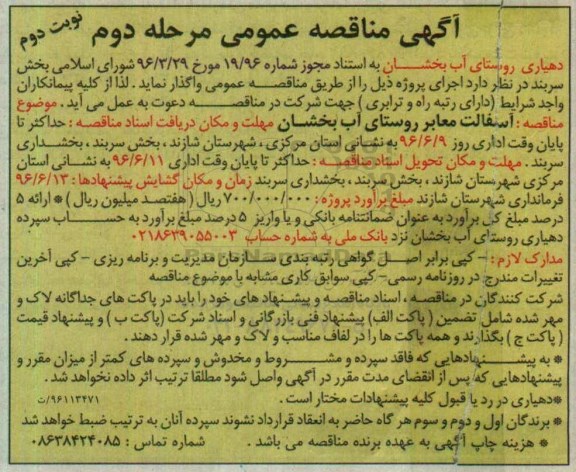 آگهی مناقصه عمومی مرحله دوم
نوبت دوم
دهیاری روستای آب بخشان به استناد مجوز شماره ۱۹/۹۶ مورخ ۹۶/۳/۲۹ شورای اسلامی بخش
سربند در نظر دارد اجرای پروژه ذیل را از طریق مناقصه عمومی واگذار نماید . لذا از کلیه پیمانکاران
واجد شرایط (دارای رتبه راه و ترابری ) جهت شرکت در مناقصه دعوت به عمل می آید . موضوع
مناقصه : آسفالت معابر روستای آب بخشان مهلت و مکان دریافت اسناد مناقصه : حداکثر تا
پایان وقت اداری روز ۹۶/۶/۹ به نشانی استان مرکزی ، شهرستان شازند ، بخش سربند ، بخشداری
سربند . مهلت و مکان تحویل اسناد مناقصه : حداکثر تا پایان وقت اداری ۹۶/۶/۱۱ به نشانی استان
مرکزی شهرستان شازند ، بخش سربند ، بخشداری سربند زمان و مکان گشایش پیشنهادها : ۹۶/۶/۱۳
فرمانداری شهرستان شازند مبلغ برآورد پروژه : ۷۰۰/۰۰۰/۰۰۰ ریال ( هفتصد میلیون ریال ) * ارائه ۵
درصد مبلغ کل برآورد به عنوان ضمانتنامه بانکی و یا واریز ۵ درصد مبلغ برآورد به حساب سپرده
دهیاری روستای آب بخشان نزد بانک ملی به شماره حساب ۰۲۱۸۶۳۹۰۵۵۰۰۳
مدارک لازم : – کپی برابر اصل گواهی رتبه بندی سازمان مدیریت و برنامه ریزی – کپی آخرین
تغییرات مندرج در روزنامه رسمی– کپی سوابق کاری مشابه با موضوع مناقصه
شرکت کنندگان در مناقصه ، اسناد مناقصه و پیشنهاد های خود را باید در پاکت های جداگانه لاک و
مهر شده شامل تضمین ( پاکت الف) پیشنهاد فنی بازرگانی و اسناد شرکت (پاکت ب ) و پیشنهاد قیمت
( پاکت ج ) بگذارند و همه پاکت ها را در لفاف مناسب و لاک و مهر شده قرار دهند .
* به پیشنهادهایی که فاقد سپرده و مشروط و مخدوش و سپرده های کمتر از میزان مقرر و
پیشنهادهایی که پس از انقضای مدت مقرر در آگهی واصل شود مطلقا ترتیب اثر داده نخواهد شد .
*دهیاری در رد یا قبول کلیه پیشنهادات مختار است . ۹۶۱۱۳۴۷۱/ت
* برندگان اول و دوم و سوم هر گاه حاضر به انعقاد قرارداد نشوند سپرده آنان به ترتیب ضبط خواهد شد
* هزینه چاپ آگهی به عهده برنده مناقصه می باشد . شماره تماس : ۰۸۶۳۸۴۲۴۰۸۵